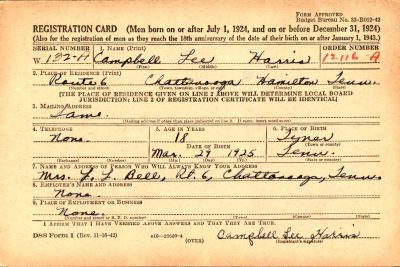 FORM APPROVED
Budget Bureau No. 33-R012-42
REGISTRATION CARD (Men born on or after July 1, 1924, and on or before December 31, 1924)
(Also for the registration of men as they reach the 18th anniversary of the date of their birth on or after January 1, 1943.)
SERIAL NUMBER 1. NAME (Print) ORDER NUMBER
W 132-A Campbell Lee Harris 12116 A
(First) (Middle) (Last)
2. PLACE OF RESIDENCE (Print)
Route 6 Chattanooga Hamilton Tenn.
(Number and street) (Town, township, village, or city) (County) (State)
[THE PLACE OF RESIDENCE GIVEN ON LINE 2 ABOVE WILL DETERMINE LOCAL BOARD
JURISDICTION; LINE 2 OF REGISTRATION CERTIFICATE WILL BE IDENTICAL]
3. MAILING ADDRESS
Same.
(Mailing address if other than place indicated on line 2. If same, insert word same)
4. TELEPHONE 5. AGE IN YEARS 6. PLACE OF BIRTH
None. 18 Tyner
DATE OF BIRTH (Town or county)
Mar. 29 1925 Tenn.
(Exchange) (Number) (Mo.) (Day) (Yr.) (State or country)
7. NAME AND ADDRESS OF PERSON WHO WILL ALWAYS KNOW YOUR ADDRESS
Mrs. L. L. Bell, Rt. 6, Chattanooga, Tenn.
8. EMPLOYER'S NAME AND ADDRESS
None.
9. PLACE OF EMPLOYMENT OR BUSINESS
None.
(Number and street or R. F. D. number) (Town) (County) (State)
I AFFIRM THAT I HAVE VERIFIED ABOVE ANSWERS AND THAT THEY ARE TRUE.
DSS Form 1 (Rev. 11-16-42) (OVER) Campbell Lee Harris
(Registrant's signature)